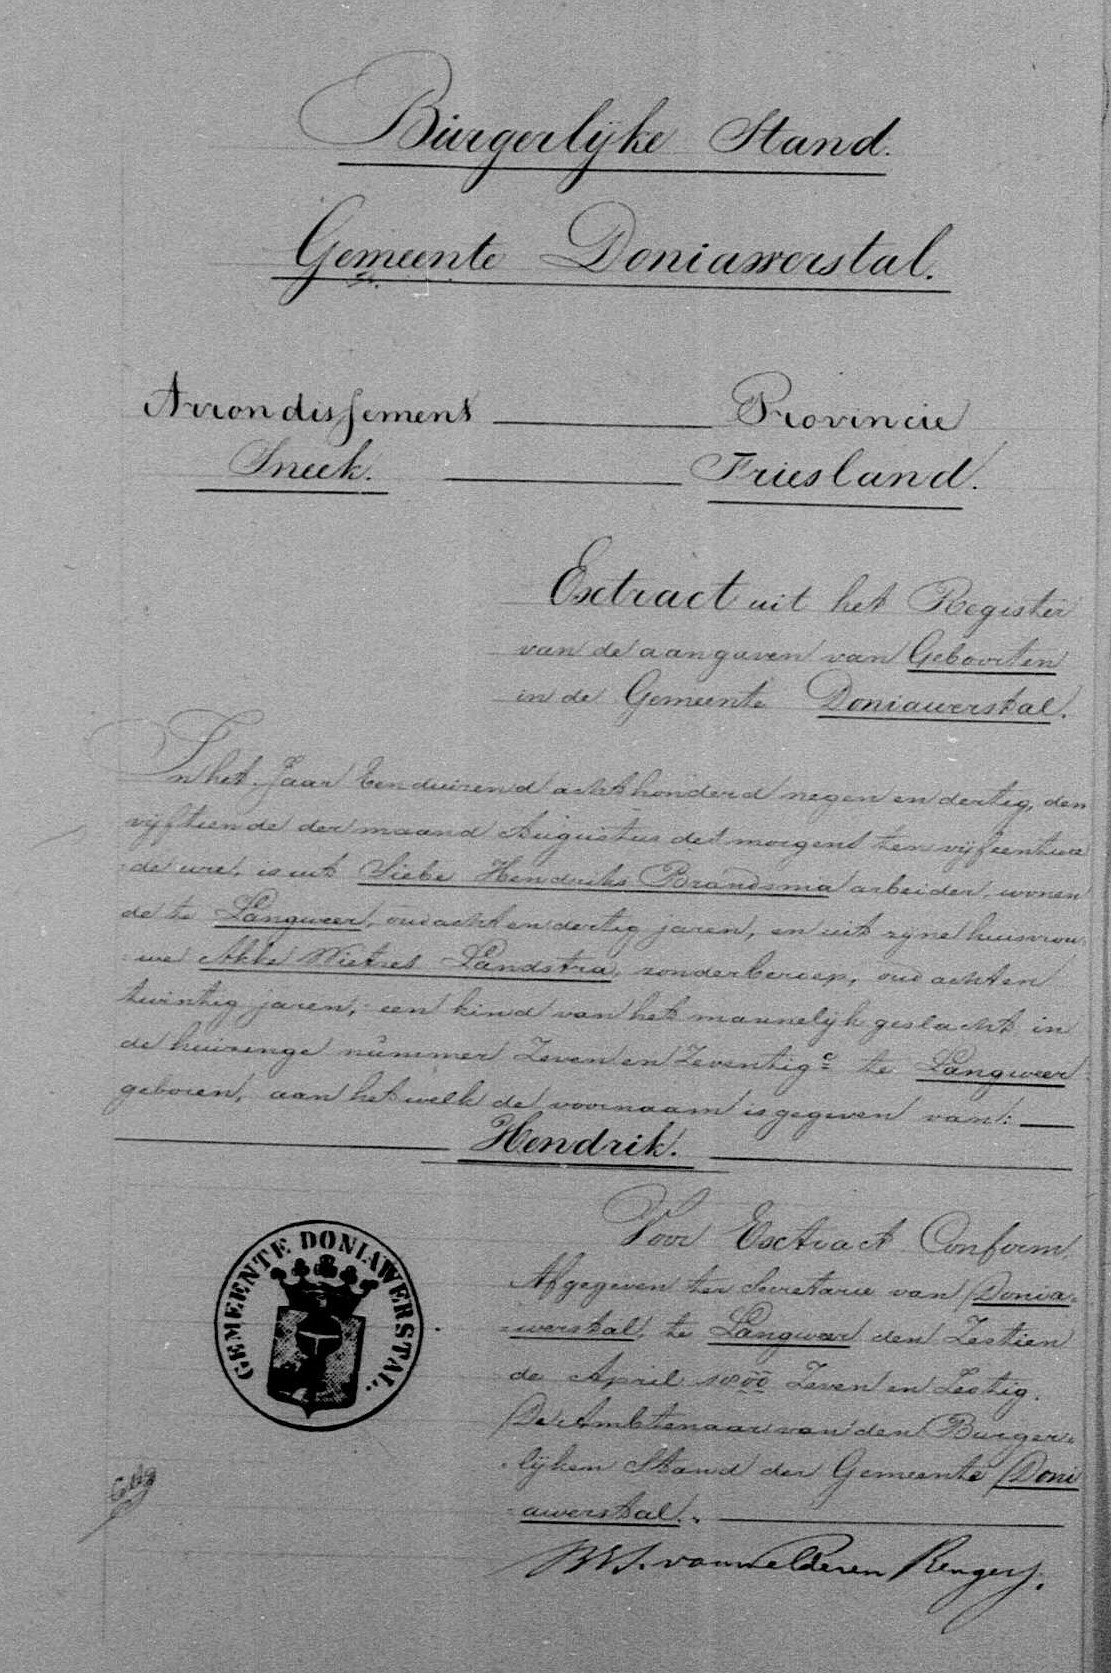 Burgerlijke Stand.
Gemeente Doniawerstal.
Arrondissement Provincie
Sneek. Friesland.
Extract uit het Register
van de aangaven van Geboorten
in de Gemeente Doniawerstal.
In het Jaar Eenduizend achthonderd negen en dertig, den
vijftiende der maand Augustus des morgens ten vijf
de ure, is uit Siebe Hendriks Brandsma arbeider, wonen
de te Langweer, oud acht en dertig jaren, en uit zijne huisvrou
we Akke Wietzes Landstra, zonder beroep, oud acht en
twintig jaren, een kind van het mannelijk geslacht, in
de huizinge nummer Zeven en Zeventig c te Langweer
geboren, aan het welk de voornaam is gegeven van:
Hendrik.
Voor Extract Conform
Afgegeven ter Secretarie van Donia-
-werstal, te Langweer den Zestien
de April 1800 Zeven en Zestig.
De Ambtenaar van den Burger-
-lijken Stand der Gemeente Doni
-awerstal.
GEMEENTE DONIAWERSTAL.
van Welderen Rengers.